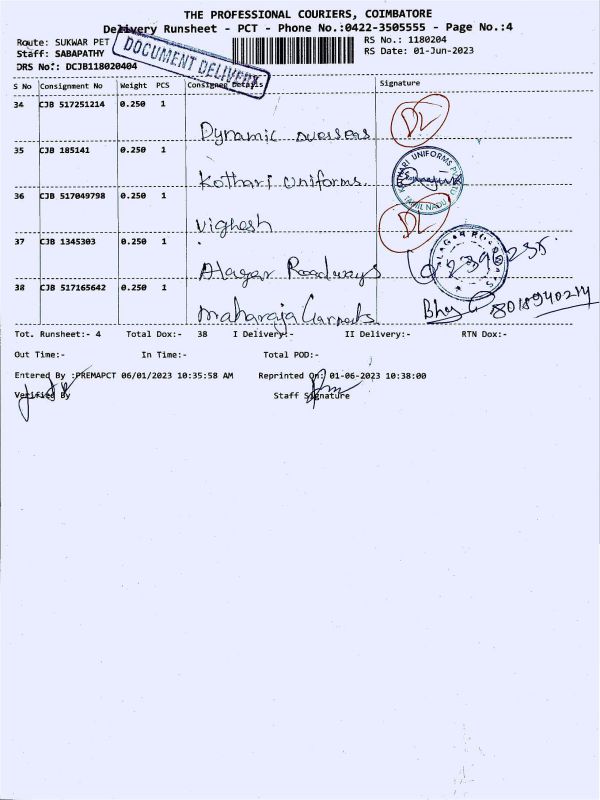 THE PROFESSIONAL COURIERS, COIMBATORE
Delivery Runsheet - PCT - Phone No.:0422-3505555 - Page No.:4
Route: SUKWAR PET
RS No.: 1180204
Staff: SABAPATHY
RS Date: 01-Jun-2023
DOCUMENT DELIVERY
DRS No: DCJB118020404
S No Consignment No Weight PCS Consignee Details Signature
34 CJB 517251214 0.250 1
Dynamic overseas
DL
35 CJB 185141 0.250 1
Kothari uniforms
KOTHARI UNIFORMS
TAMIL NADU
36 CJB 517049798 0.250 1
Vighesh
DL
37 CJB 1345303 0.250 1
Alagar Roadways
38 CJB 517165642 0.250 1
Maharaja
Tot. Runsheet:- 4 Total Dox:- 38 I Delivery:- II Delivery:- RTN Dox:-
Out Time:- In Time:- Total POD:-
Entered By :PREMAPCT 06/01/2023 10:35:58 AM Reprinted On: 01-06-2023 10:38:00
Verified By Staff Signature